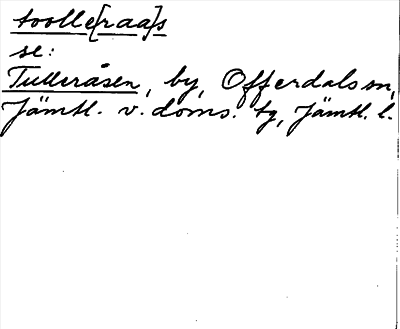 toolle[raa]s
se:
Tulleråsen, by, Offerdals sn,
Jämtl. v. doms. tg, Jämtl. l.